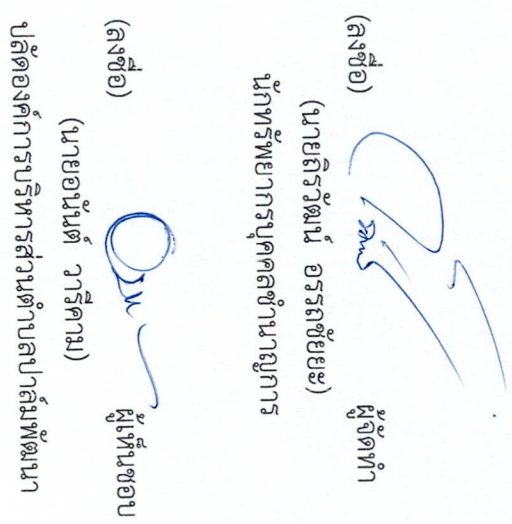 (ลงชื่อ) ผู้จัดทำ
(นายถิรวัฒน์ อรรถชัยยะ)
นักทรัพยากรบุคคลชำนาญการ
(ลงชื่อ) ผู้เห็นชอบ
(นายอนันต์ วารีคาม)
ปลัดองค์การบริหารส่วนตำบลปาล์มพัฒนา